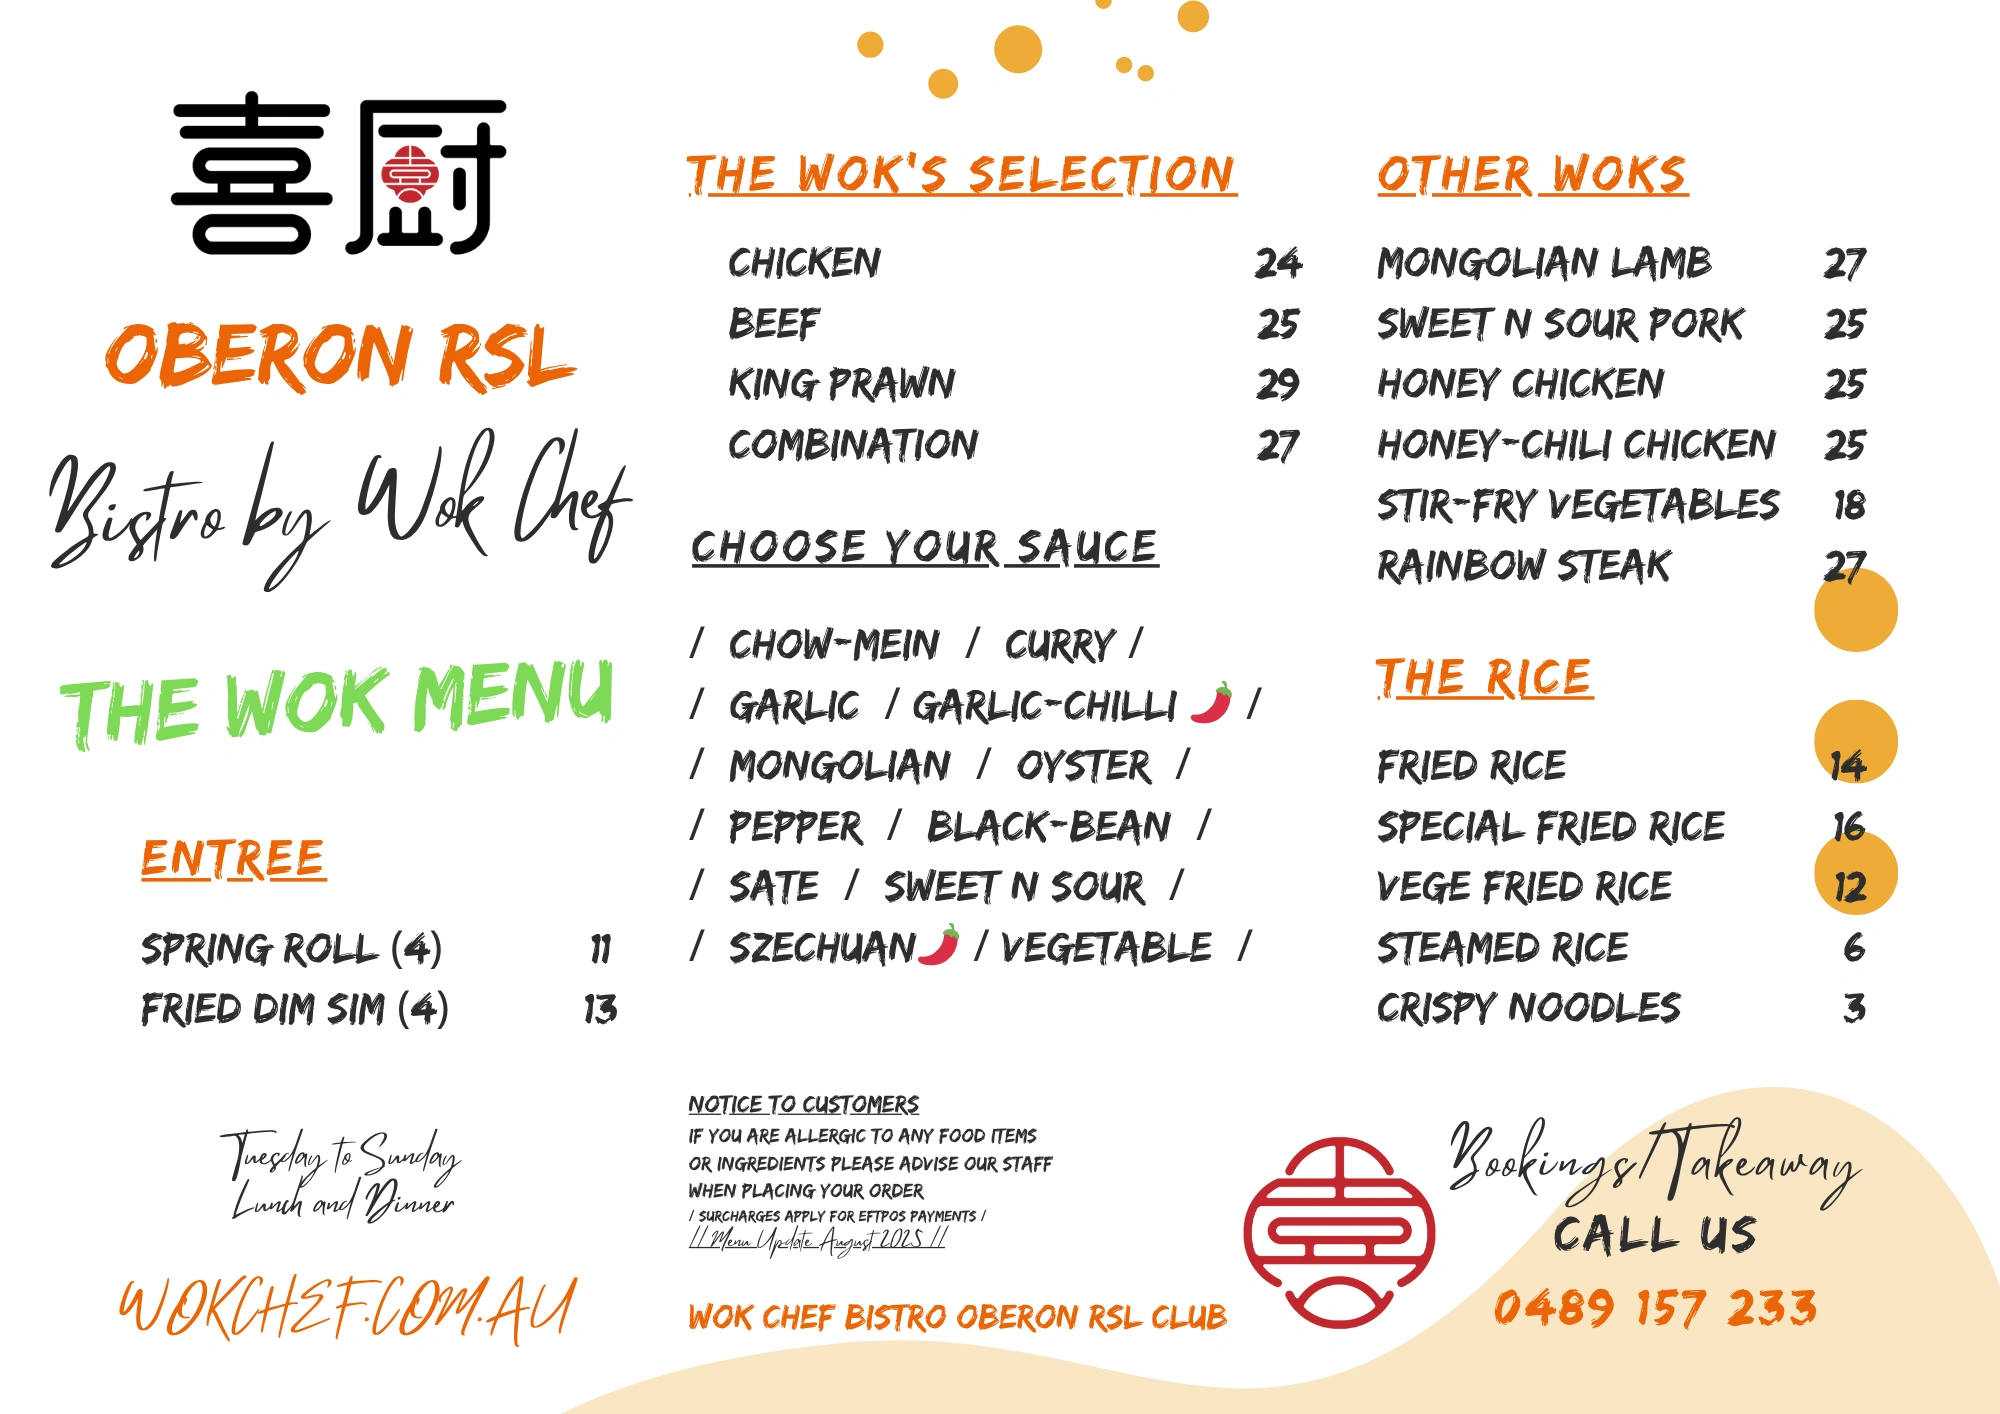 喜厨
OBERON RSL
Bistro by Wok Chef
THE WOK MENU
ENTREE
SPRING ROLL (4) 11
FRIED DIM SIM (4) 13
Tuesday to Sunday
Lunch and Dinner
WOKCHEF.COM.AU
THE WOK'S SELECTION
CHICKEN 24
BEEF 25
KING PRAWN 29
COMBINATION 27
CHOOSE YOUR SAUCE
/ CHOW-MEIN / CURRY /
/ GARLIC / GARLIC-CHILLI 🌶 /
/ MONGOLIAN / OYSTER /
/ PEPPER / BLACK-BEAN /
/ SATE / SWEET N SOUR /
/ SZECHUAN🌶 / VEGETABLE /
NOTICE TO CUSTOMERS
IF YOU ARE ALLERGIC TO ANY FOOD ITEMS
OR INGREDIENTS PLEASE ADVISE OUR STAFF
WHEN PLACING YOUR ORDER
/ SURCHARGES APPLY FOR EFTPOS PAYMENTS /
// Menu Update August 2025 //
WOK CHEF BISTRO OBERON RSL CLUB
OTHER WOKS
MONGOLIAN LAMB 27
SWEET N SOUR PORK 25
HONEY CHICKEN 25
HONEY-CHILI CHICKEN 25
STIR-FRY VEGETABLES 18
RAINBOW STEAK 27
THE RICE
FRIED RICE 14
SPECIAL FRIED RICE 16
VEGE FRIED RICE 12
STEAMED RICE 6
CRISPY NOODLES 3
Bookings/Takeaway
CALL US
0489 157 233